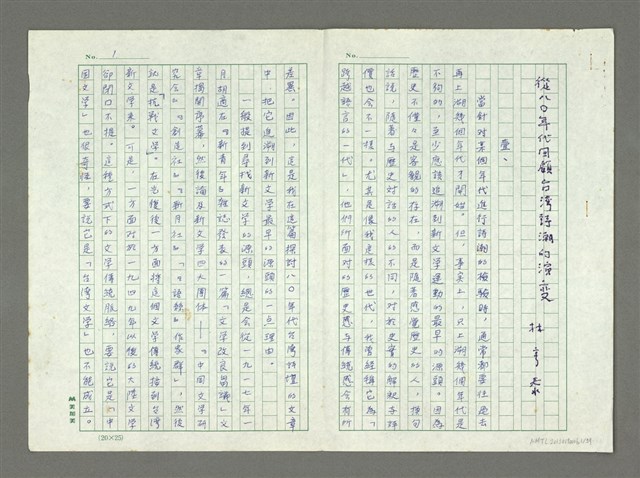 No.
從八〇年代回顧台灣詩潮的演變
林亨泰
壹、
當針對某個年代進行詩潮的檢驗時，通常都要往過去
再上溯幾個年代才開始。但，事實上，只上溯幾個年代是
不夠的，至少應該追溯到新文學運動的最早的源頭。因為
歷史不僅是客觀的存在，而是隨著感覺歷史的人，換句
話說，隨著與歷史對話的人的不同，對於史實的解說與評
價也會不一樣。尤其是像我這樣的世代，我曾經稱它為「
跨越語言的一代」，他們所面對的歷史感與傳統感會有所
No. 1
差異。因此，這是我在這篇探討八〇年代台灣詩壇的文章
中，把它追溯到新文學最早的源頭的一點理由。
一般提到尋找新文學的源頭，總是會從一九一七年一
月胡適在『新青年』雜誌發表的一篇「文學改良芻議」文
章揭開序幕，然後論及新文學四大團体——『中國文學研
究會』『創造社』『新月社』『語絲』作家群」，然後
就是「抗戰文學」。在光復後一方面將這個文學傳統接到台灣
新文學來。可是，一方面對於一九四九年以後的大陸文學
卻閉口不提。這種方式下的文學傳統脈絡，要說它是「中
國文學」也很奇怪，要說它是「台灣文學」也不能成立。
(20×25)